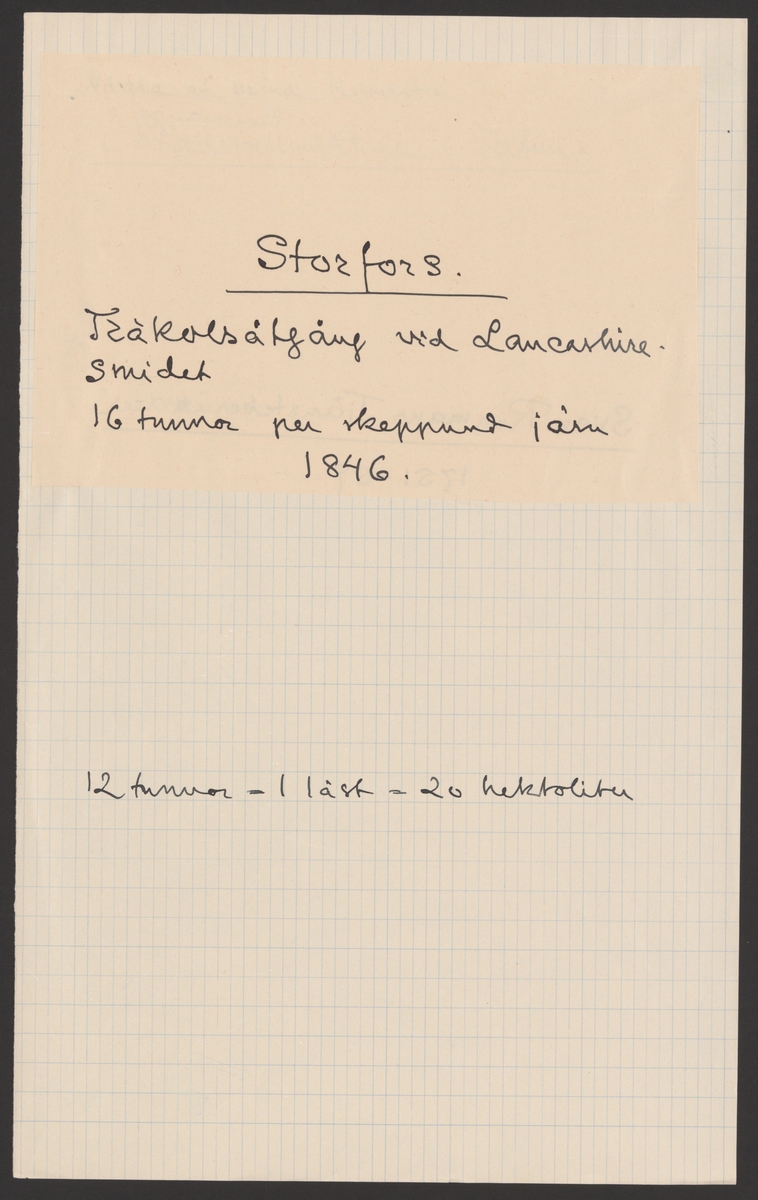 Storfors.
Träkolsåtgång vid Lancashire-
Smidet
16 tunnor per skeppund järn
1846.
12 tunnor = 1 läst = 20 hektoliter